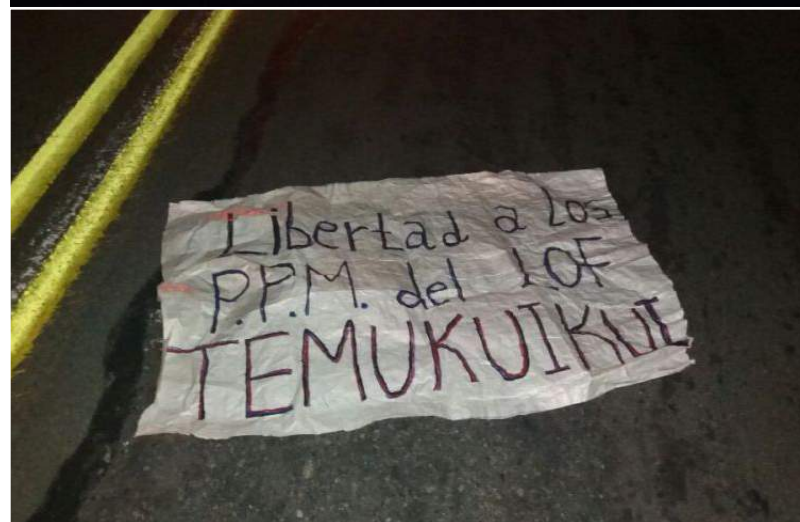 Libertad a Los
P.P.M. del LOF
TEMUKUIKUI